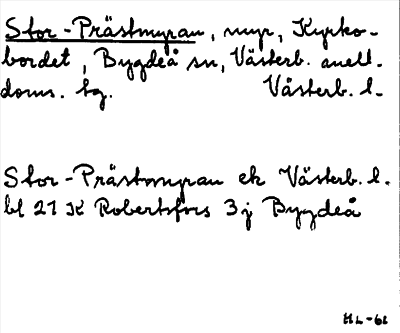 Stor-Prästmyran, myr, Kyrko-
bordet, Bygdeå sn, Västerb. mell.
doms. tg. Västerb. l.
Stor-Prästmyran ek Västerb. l.
bl 21 K Robertsfors 3j Bygdeå
HL-61